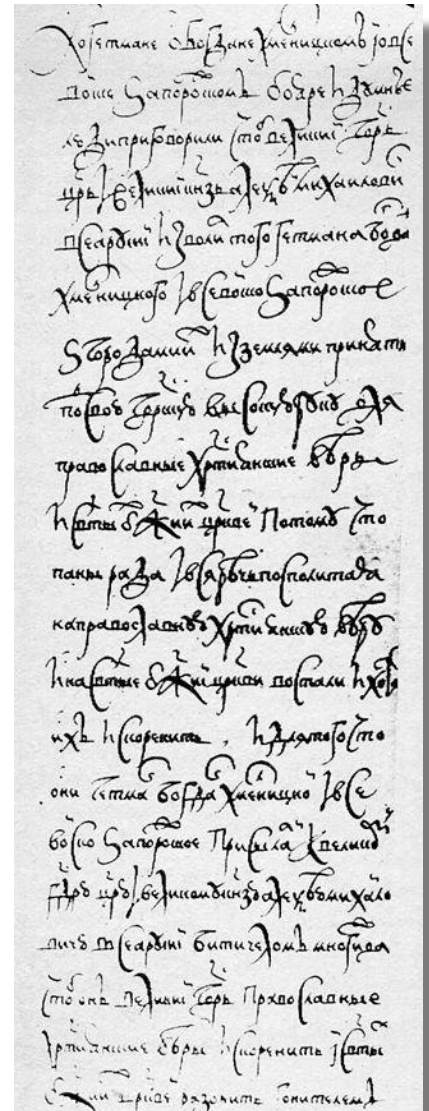 А о гетмане о Богдане Хмелницком и о все
Войске Запорожском бояре и думные
люди приговорили чтоб великии гсдрь
црь и великии кнзь Алексеи Михаилович
всеа Русии изволил того гетмана Богдана
Хмелницкого и все Войско Запорожское
з городами их и з землями принять
под свою гсдрскую высокую руку для
православные хртиянские веры
и святых бжиих црквеи потому что
паны рада и вся Речь Посполитая
на православную хртиянскую веру
и на святые бжии цркви востали и хотят
их искоренить и для того что
они гетман Богдан Хмелницкои и все
Войско Запорожское присылали к великому
гсдрю црю и великому кнзю Алексею Михаило
вичю всеа Русии бити челом многижда
чтоб он великии гсдрь православные
хртиянские веры искоренить и святых
бжиих црквеи разорить гонителем